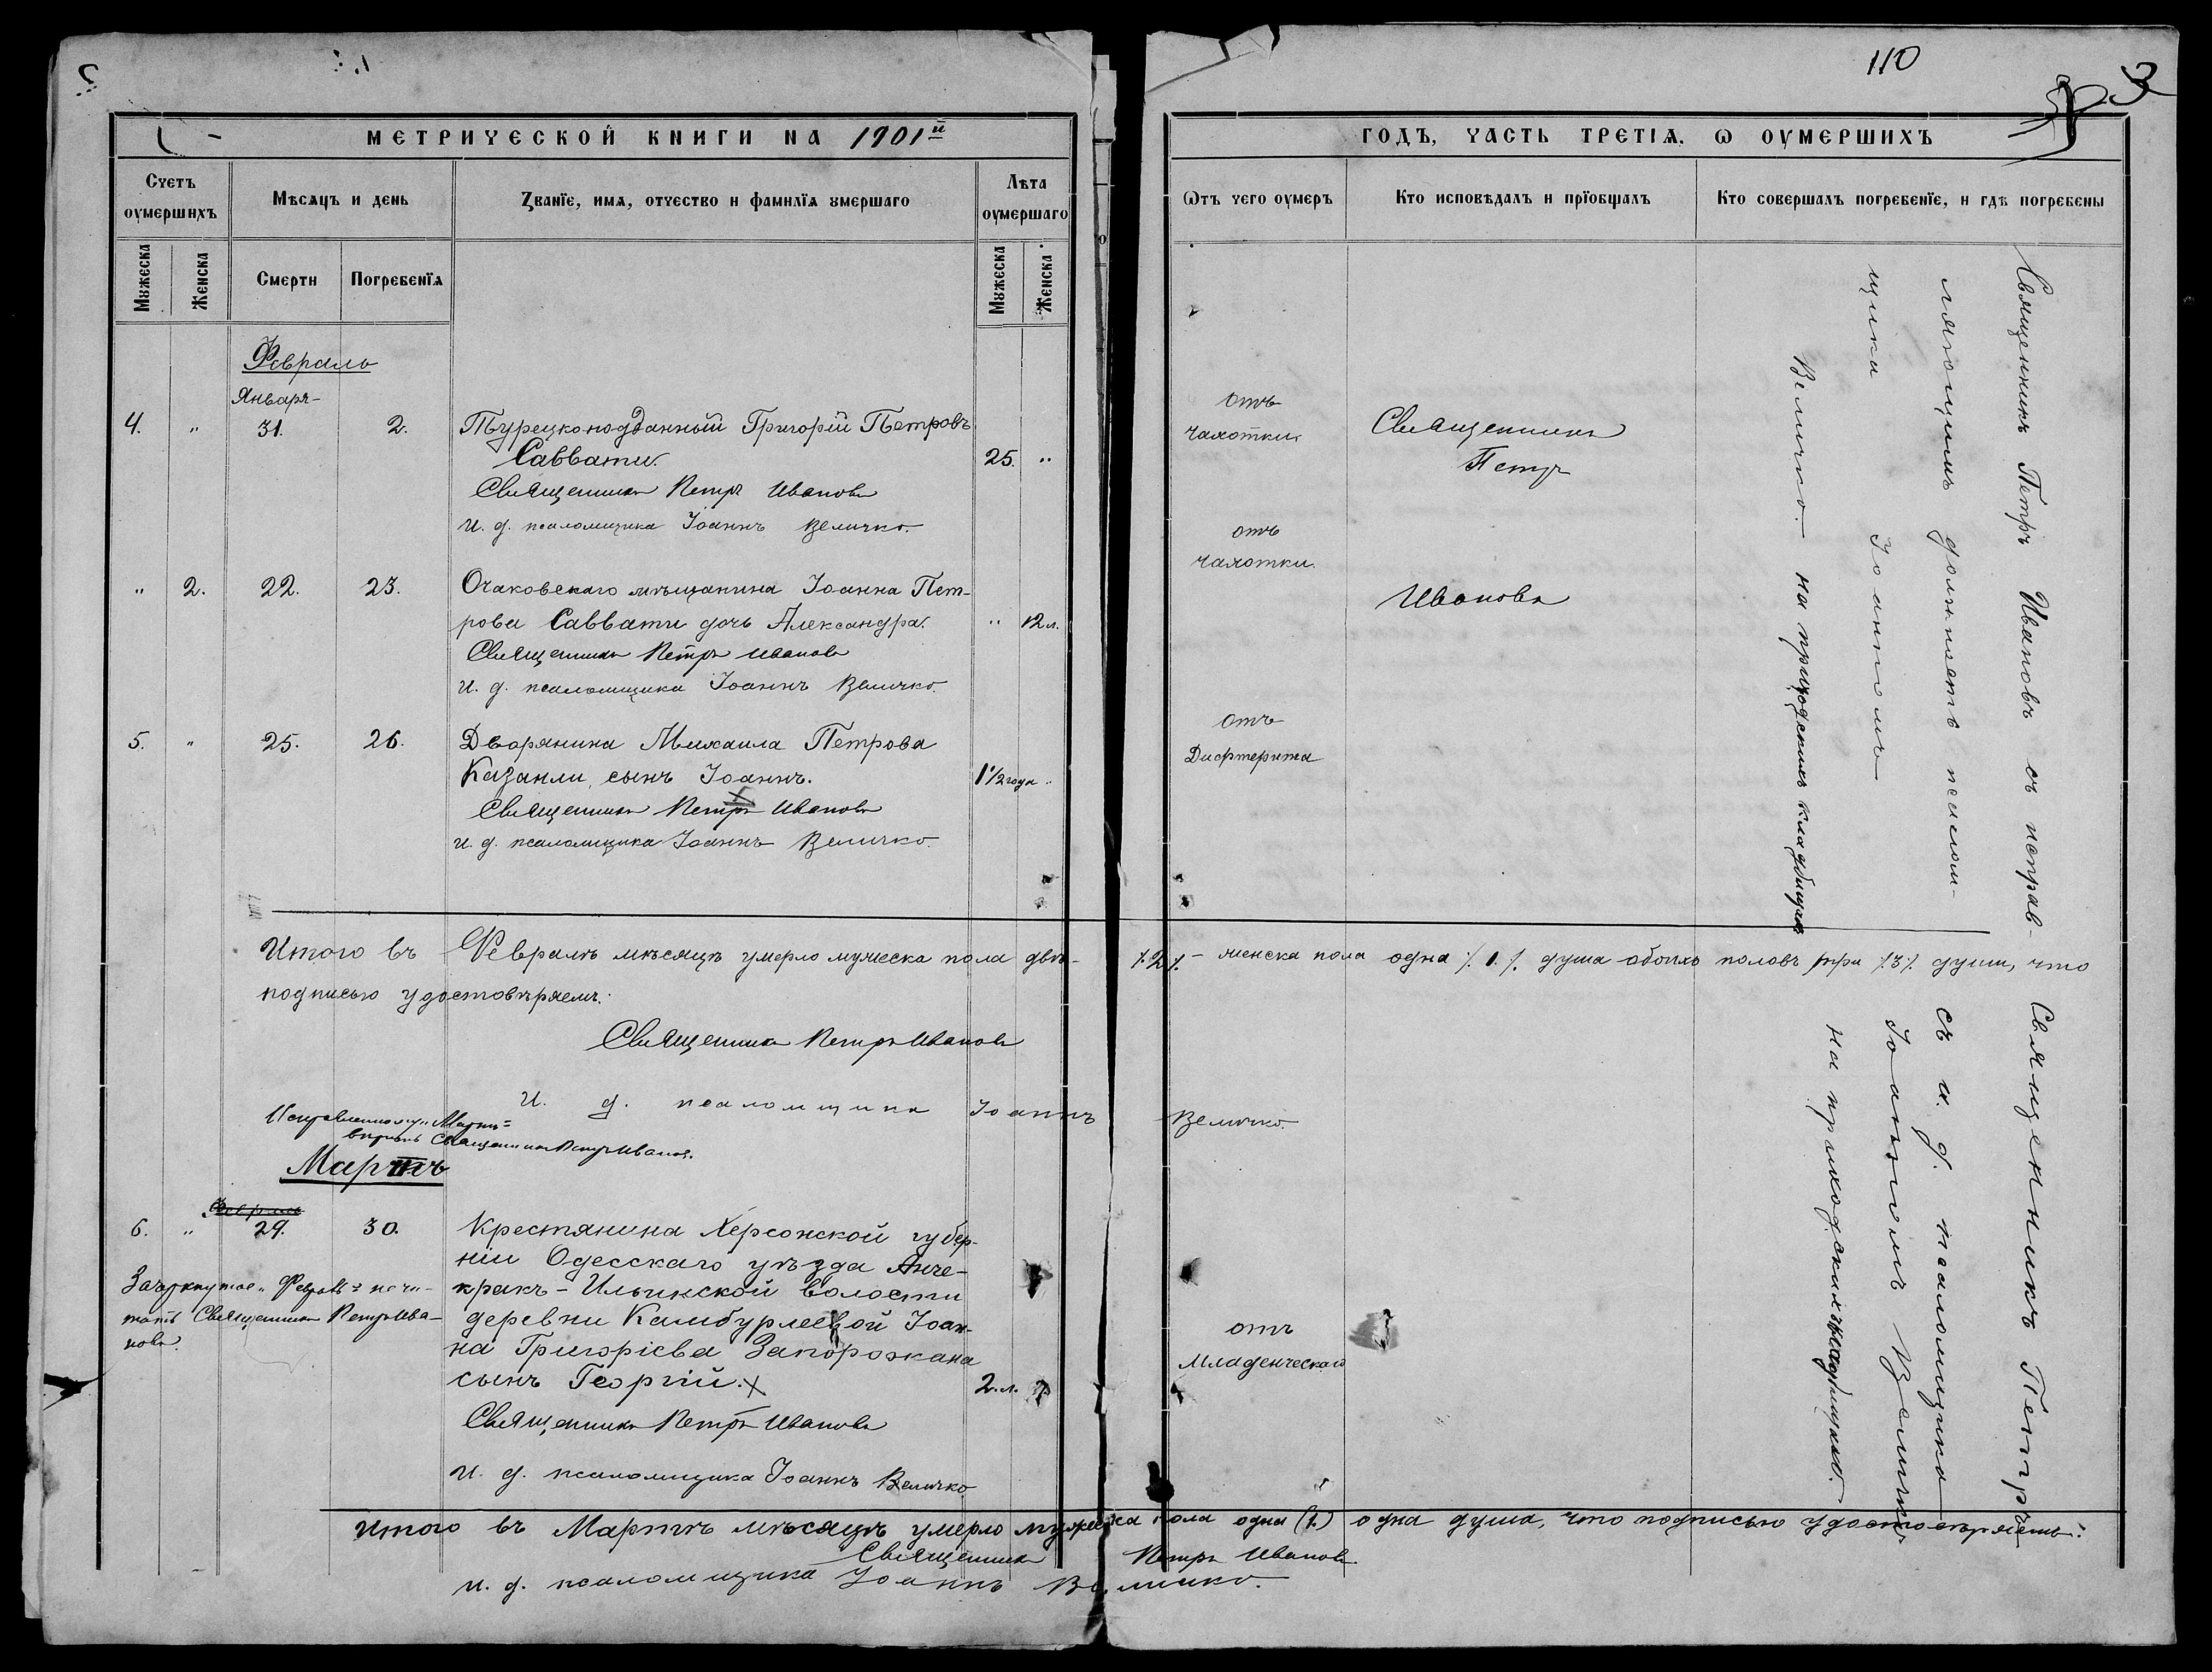 110
МЕТРИЧЕСКОЙ КНИГИ НА 1901й
ГОДЪ, ЧАСТЬ ТРЕТІѦ, Ѡ ОУМЕРШИХЪ
Счетъ оумершихъ
Мѣсѧцъ и день
Званїе, имѧ, отчество и фамилїѧ умершаго
Лѣта оумершаго
Ѿтъ чего оумеръ
Кто исповѣдалъ и прїобщалъ
Кто совершалъ погребенїе, и гдѣ погребены
Мужеска
Женска
Смерти
Погребенїѧ
Мужеска
Женска
Февраль
Января
4. " 31. 2. Турецкоподданный Григорій Петровъ
Саввати. 25. "
Священникъ Петръ Ивановъ
И. д. псаломщика Іоаннъ Величко.
отъ
чахотки.
Священникъ
Петръ
Ивановъ
" 2. 22. 23. Очаковскаго мѣщанина Іоанна Пет-
рова Саввати дочь Александра. " 12 л.
Священникъ Петръ Ивановъ
И. д. псаломщика Іоаннъ Величко.
отъ
чахотки.
5. " 25. 26. Дворянина Михаила Петрова
Казанли, сынъ Іоаннъ. 1 1/2 года "
Священникъ Петръ Ивановъ
И. д. псаломщика Іоаннъ Величко.
отъ
Дифтерита
Священникъ Петръ Ивановъ съ исправ-
ляющимъ должность псалом-
щика Іоанномъ
Величко. на приходскомъ кладбищѣ
Итого въ Февралѣ мѣсяцѣ умерло мужеска пола двѣ- /.2/. - женска пола одна /.1./. душа обоихъ половъ три /.3/. души, что
подписью удостовѣряемъ.
Священникъ Петръ Ивановъ
И. д. псаломщика Іоаннъ Величко.
Исправленному "Мартъ"
вѣрить Священникъ Петръ Ивановъ.
Мартъ
Февраля
6. " 29. 30. Крестянина Херсонской губер-
ніи Одесскаго уѣзда Анче-
кракъ-Ильинской волости
деревни Камбурлеевой Іоан-
на Григоріева Запорожана
сынъ Георгій. 2. л.
Священникъ Петръ Ивановъ
И. д. псаломщика Іоаннъ Величко
Зачеркнутое "Февраль" не чи-
тать Священникъ Петръ Ива-
новъ.
отъ
Младенческаго
Священникъ Петръ
съ и. д. псаломщика
Іоанномъ Величко
на приходскомъ кладбищѣ.
Итого въ Мартѣ мѣсяцѣ умерло мужеска пола одна (1.) одна душа, что подписью удостовѣряемъ.
Священникъ Петръ Ивановъ.
И. д. псаломщика Іоаннъ Величко.